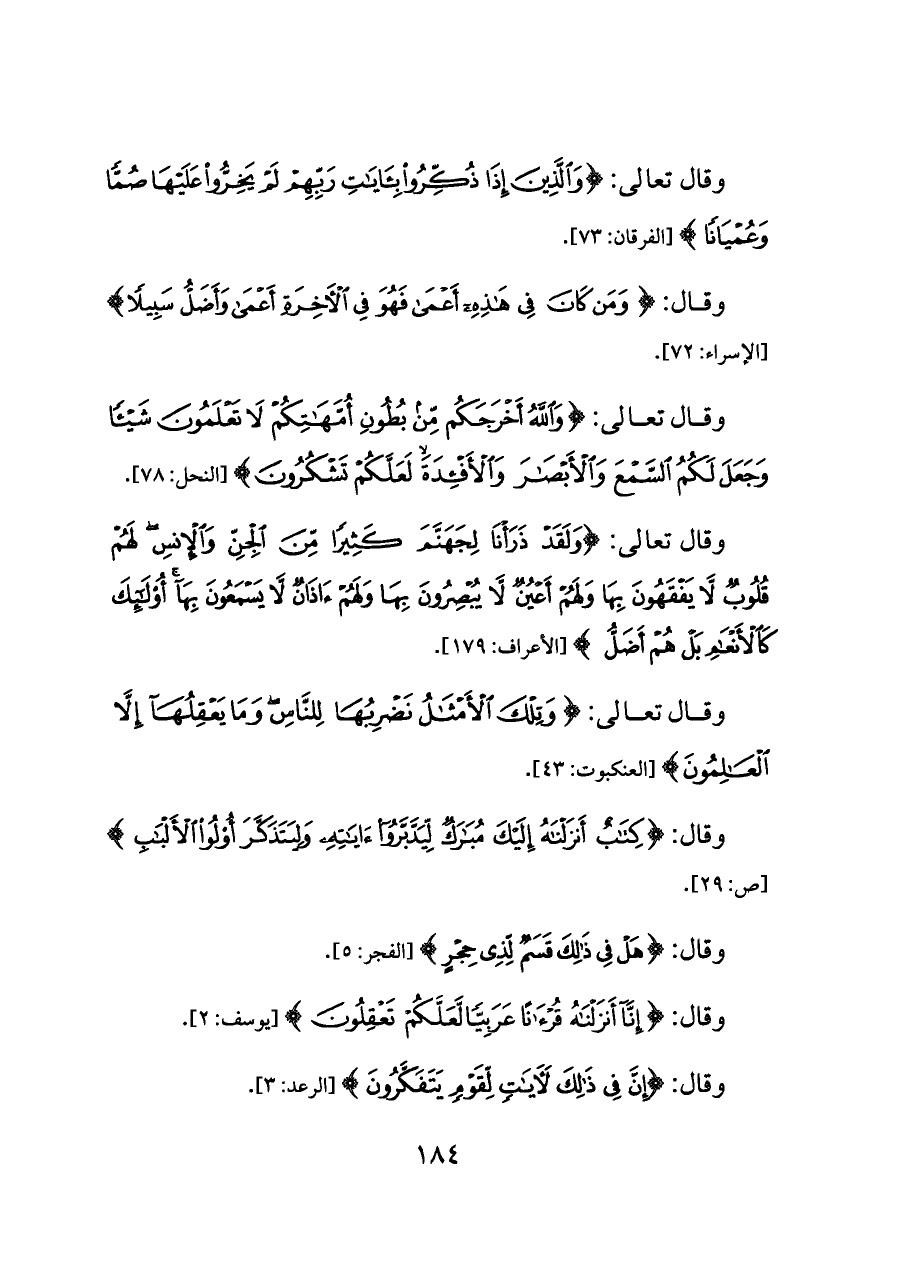 وقال تعالى: ﴿وَٱلَّذِينَ إِذَا ذُكِّرُوا۟ بِـَٔايَـٰتِ رَبِّهِمْ لَمْ يَخِرُّوا۟ عَلَيْهَا صُمًّا
وَعُمْيَانًا ﴾ [الفرقان: ٧٣].
وقـال: ﴿ وَمَن كَانَ فِى هَـٰذِهِۦٓ أَعْمَىٰ فَهُوَ فِى ٱلْـَٔاخِرَةِ أَعْمَىٰ وَأَضَلُّ سَبِيلًا﴾
[الإسراء: ٧٢].
وقـال تعـالى: ﴿وَٱللَّهُ أَخْرَجَكُم مِّنۢ بُطُونِ أُمَّهَـٰتِكُمْ لَا تَعْلَمُونَ شَيْـًٔا
وَجَعَلَ لَكُمُ ٱلسَّمْعَ وَٱلْأَبْصَـٰرَ وَٱلْأَفْـِٔدَةَ ۙ لَعَلَّكُمْ تَشْكُرُونَ﴾ [النحل: ٧٨].
وقال تعالى: ﴿وَلَقَدْ ذَرَأْنَا لِجَهَنَّمَ كَثِيرًا مِّنَ ٱلْجِنِّ وَٱلْإِنسِ ۖ لَهُمْ
قُلُوبٌ لَّا يَفْقَهُونَ بِهَا وَلَهُمْ أَعْيُنٌ لَّا يُبْصِرُونَ بِهَا وَلَهُمْ ءَاذَانٌ لَّا يَسْمَعُونَ بِهَآ ۚ أُو۟لَـٰٓئِكَ
كَٱلْأَنْعَـٰمِ بَلْ هُمْ أَضَلُّ ﴾ [الأعراف: ١٧٩].
وقـال تعـالى: ﴿ وَتِلْكَ ٱلْأَمْثَـٰلُ نَضْرِبُهَا لِلنَّاسِ ۖ وَمَا يَعْقِلُهَآ إِلَّا
ٱلْعَـٰلِمُونَ﴾ [العنكبوت: ٤٣].
وقال: ﴿كِتَـٰبٌ أَنزَلْنَـٰهُ إِلَيْكَ مُبَـٰرَكٌ لِّيَدَّبَّرُوٓا۟ ءَايَـٰتِهِۦ وَلِيَتَذَكَّرَ أُو۟لُوا۟ ٱلْأَلْبَـٰبِ ﴾
[ص: ٢٩].
وقال: ﴿هَلْ فِى ذَٰلِكَ قَسَمٌ لِّذِى حِجْرٍ ﴾ [الفجر: ٥].
وقال: ﴿ إِنَّآ أَنزَلْنَـٰهُ قُرْءَٰنًا عَرَبِيًّا لَّعَلَّكُمْ تَعْقِلُونَ ﴾ [يوسف: ٢].
وقال: ﴿إِنَّ فِى ذَٰلِكَ لَـَٔايَـٰتٍ لِّقَوْمٍ يَتَفَكَّرُونَ ﴾ [الرعد: ٣].
١٨٤